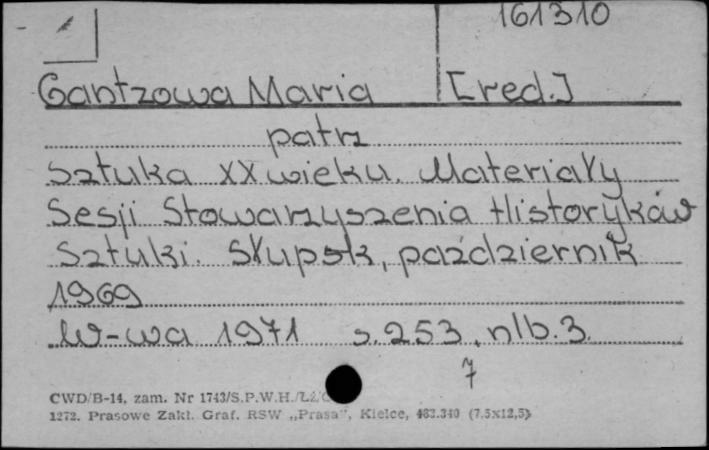 161310
Gantzowa Maria [red.]
patrz
Sztuka XX wieku. Materiały
Sesji Stowarzyszenia Historyków
Sztuki. Słupsk, październik
1969
W-wa 1971 s. 253, nlb. 3.
7
CWD/B-14, zam. Nr 1743/S.P.W.H./
1272. Prasowe Zakł. Graf. RSW „Prasa”, Kielce, 483.340 (7,5x12,5)